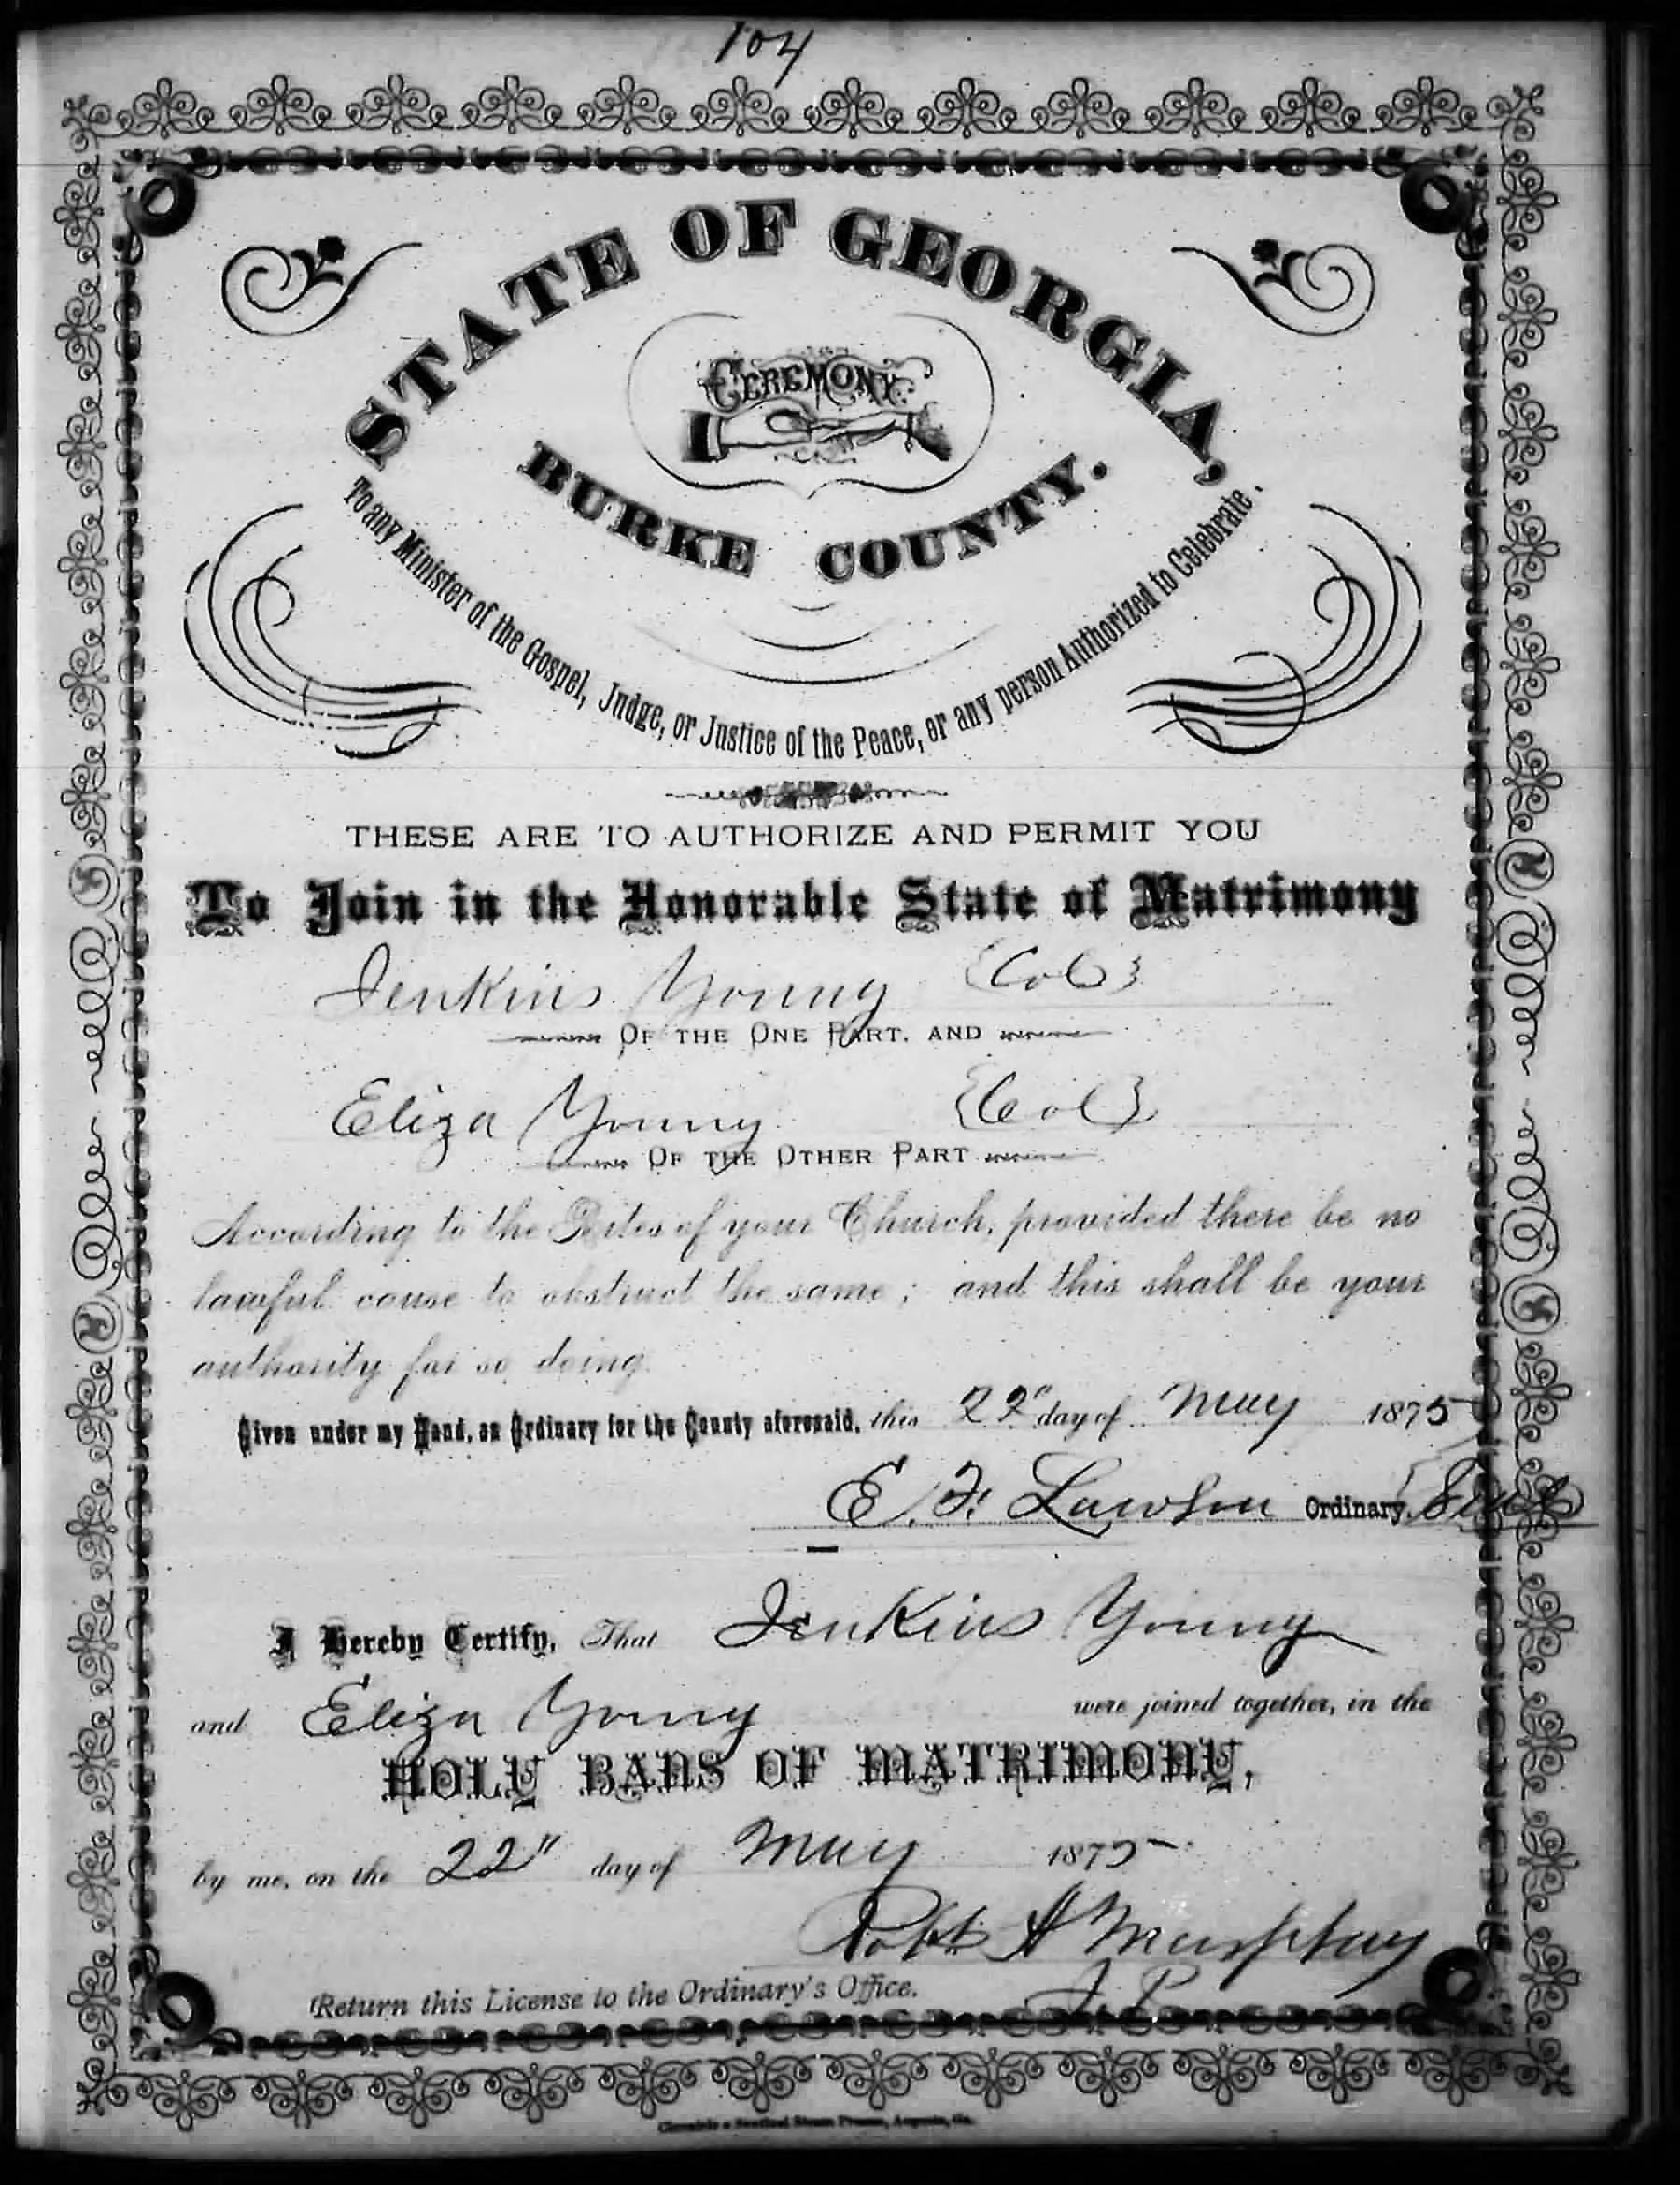 104
STATE OF GEORGIA,
CEREMONY.
BURKE COUNTY.
To any Minister of the Gospel, Judge, or Justice of the Peace, or any person Authorized to Celebrate.
THESE ARE TO AUTHORIZE AND PERMIT YOU
To Join in the Honorable State of Matrimony
Jenkins Young {Col}
OF THE ONE PART. AND
Eliza Young {Col}
OF THE OTHER PART
According to the Rites of your Church, provided there be no
lawful cause to obstruct the same; and this shall be your
authority for so doing.
Given under my Hand, as Ordinary for the County aforesaid, this 22" day of May 1875
E. F. Lawson Ordinary. {Seal}
I Hereby Certify, That Jenkins Young
and Eliza Young were joined together, in the
HOLY BANS OF MATRIMONY,
by me, on the 22" day of May 1875
Robt A Murphey
J. P.
Return this License to the Ordinary's Office.
Chronicle & Sentinel Steam Presses, Augusta, Ga.